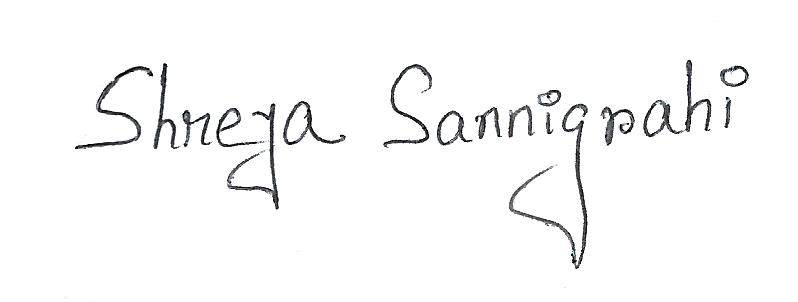 Shreya Sannigrahi